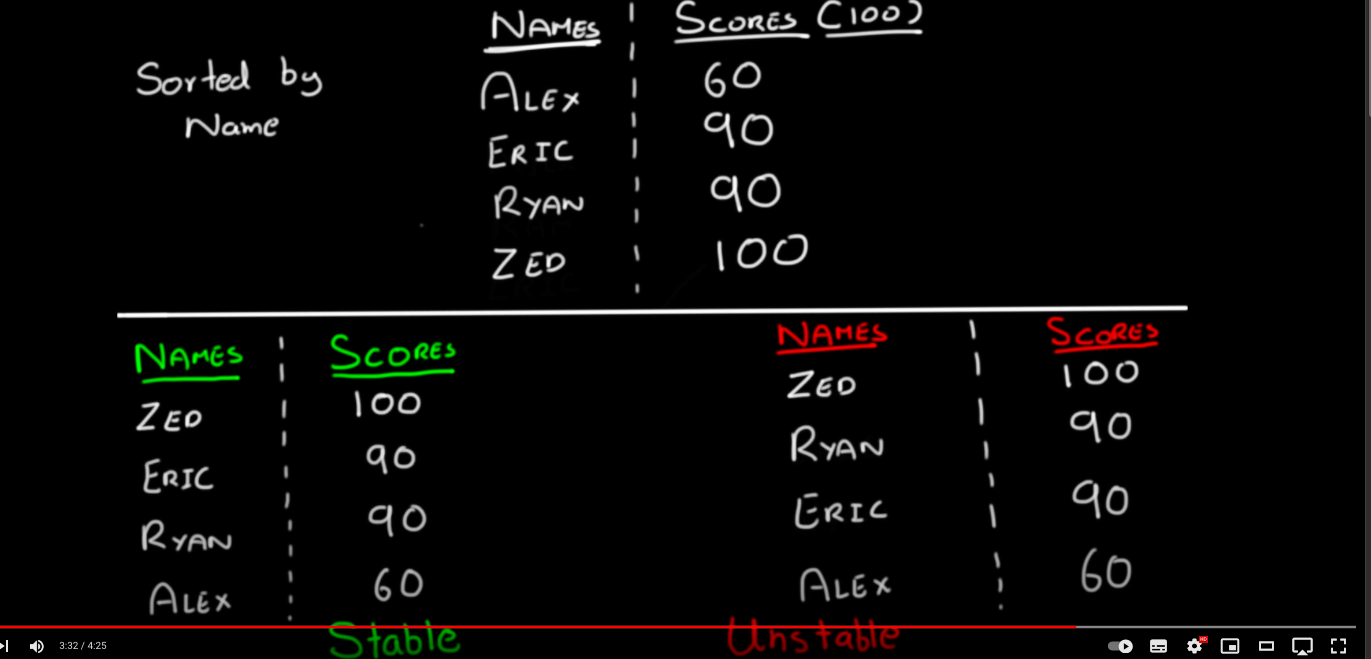 NAMES SCORES (100)
Sorted by
Name
ALEX 60
ERIC 90
RYAN 90
ZED 100
NAMES SCORES
ZED 100
ERIC 90
RYAN 90
ALEX 60
Stable
NAMES SCORES
ZED 100
RYAN 90
ERIC 90
ALEX 60
Unstable
3:32 / 4:25
HD